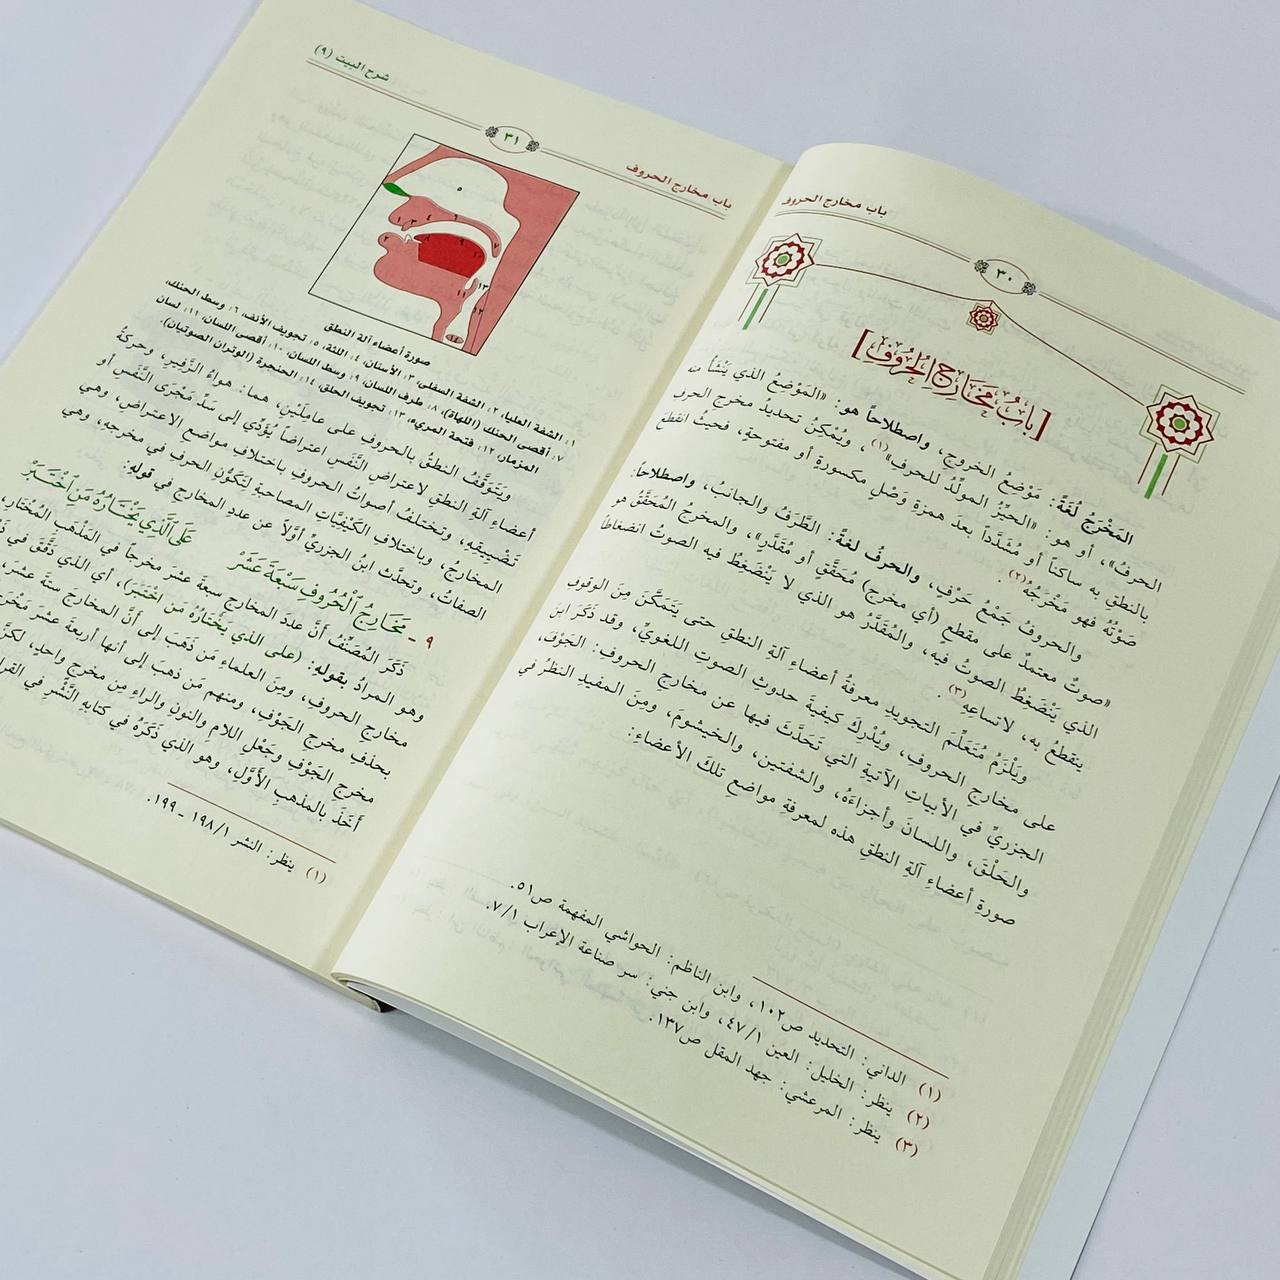 باب مخارج الحروف
٣٠
[بَابُ مَخَارِجِ الْحُرُوفِ]
المَخْرَجُ لُغَةً: مَوْضِعُ الخروجِ، واصطلاحاً هو: «المَوْضِعُ الذي يَنْشَأُ منه
الحرفُ»، أو هو: «الحيِّزُ المولِّدُ للحرفِ»(١)، ويُمْكِنُ تحديدُ مخرجِ الحرفِ
بالنطقِ به ساكناً أو مُشدَّداً بعدَ همزةِ وَصْلٍ مكسورةٍ أو مفتوحةٍ، فحيثُ انقطعَ
صَوْتُهُ فهو مَخْرَجُهُ(٢).
والحروفُ جَمْعُ حَرْفٍ، والحرفُ لغةً: الطَّرَفُ والجانبُ، واصطلاحاً:
«صوتٌ معتمدٌ على مقطعٍ (أي مخرجٍ) مُحَقَّقٍ أو مُقَدَّرٍ»، والمخرجُ المُحَقَّقُ هو
الذي يَنْضَغِطُ الصوتُ فيه، والمُقَدَّرُ هو الذي لا يَنْضَغِطُ فيه الصوتُ انضغاطاً
ينقطعُ به، لاتساعِهِ(٣).
ويَلْزَمُ مُتَعَلِّمَ التجويدِ معرفةُ أعضاءِ آلةِ النطقِ حتى يَتَمَكَّنَ مِنَ الوقوفِ
على مخارجِ الحروفِ، ويُدْرِكَ كيفيةَ حدوثِ الصوتِ اللغويِّ، وقد ذَكَرَ ابن
الجزريِّ في الأبياتِ الآتيةِ التي تَحَدَّثَ فيها عن مخارجِ الحروفِ: الجَوْفَ،
والحَلْقَ، واللسانَ وأجزاءَهُ، والشفتين، والخيشومَ، ومِنَ المفيدِ النظرُ في
صورةِ أعضاءِ آلةِ النطقِ هذه لمعرفةِ مواضعِ تلكَ الأعضاءِ:
(١) الداني: التحديد ص١٠٢، وابن الناظم: الحواشي المفهمة ص٥١.
(٢) ينظر: الخليل: العين ٤٧/١، وابن جني: سر صناعة الإعراب ٧/١.
(٣) ينظر: المرعشي: جهد المقل ص١٣٧.
باب مخارج الحروف
٣١
شرح البيت (٩)
صورة أعضاء آلة النطق
١: الشفة العليا، ٢: الشفة السفلى، ٣: الأسنان، ٤: اللثة، ٥: تجويف الأنف، ٦: وسط الحنك،
٧: أقصى الحنك (اللهاة)، ٨: طرف اللسان، ٩: وسط اللسان، ١٠: أقصى اللسان، ١١: لسان
المزمار، ١٢: فتحة المريء، ١٣: تجويف الحلق، ١٤: الحنجرة (الوتران الصوتيان).
ويَتَوَقَّفُ النطقُ بالحروفِ على عاملَيْنِ، هما: هواءُ الزَّفيرِ، وحركةُ
أعضاءِ آلةِ النطقِ لاعتراضِ النَّفَسِ اعتراضاً يُؤَدِّي إلى سَدِّ مَجْرَى النَّفَسِ أو
تَضْيِيقِهِ، وتختلفُ أصواتُ الحروفِ باختلافِ مواضعِ الاعتراضِ، وهي
المخارجُ، وباختلافِ الكَيْفِيَّاتِ المصاحبةِ لِتَكَوُّنِ الحرفِ في مخرجِهِ، وهي
الصفاتُ، وتحدَّث ابنُ الجزريِّ أوَّلاً عن عددِ المخارجِ في قولِهِ:
٩ - مَخَارِجُ الْحُرُوفِ سَبْعَةَ عَشَرْ عَلَى الَّذِي يَخْتَارُهُ مَنِ اخْتَبَرْ
ذَكَرَ المُصَنِّفُ أنَّ عددَ المخارجِ سبعةَ عشرَ مخرجاً في المذهبِ المُخْتَارِ،
وهو المرادُ بقولِهِ: (على الذي يَخْتَارُهُ مَنِ اخْتَبَرْ)، أي الذي دَقَّقَ في
مخارجِ الحروفِ، ومِنَ العلماءِ مَن ذَهَبَ إلى أنَّ المخارجَ ستةَ عشرَ،
بحذفِ مخرجِ الجَوْفِ، ومنهم مَن ذهبَ إلى أنها أربعةَ عشرَ
مخرجِ الجَوْفِ وجَعْلِ اللامِ والنونِ والراءِ مِن مخرجٍ واحدٍ،
أَخَذَ بالمذهبِ الأَوَّلِ، وهو الذي ذَكَرَهُ في كتابِهِ النَّشْرِ في
(١) ينظر: النشر ١٩٨/١ - ١٩٩.